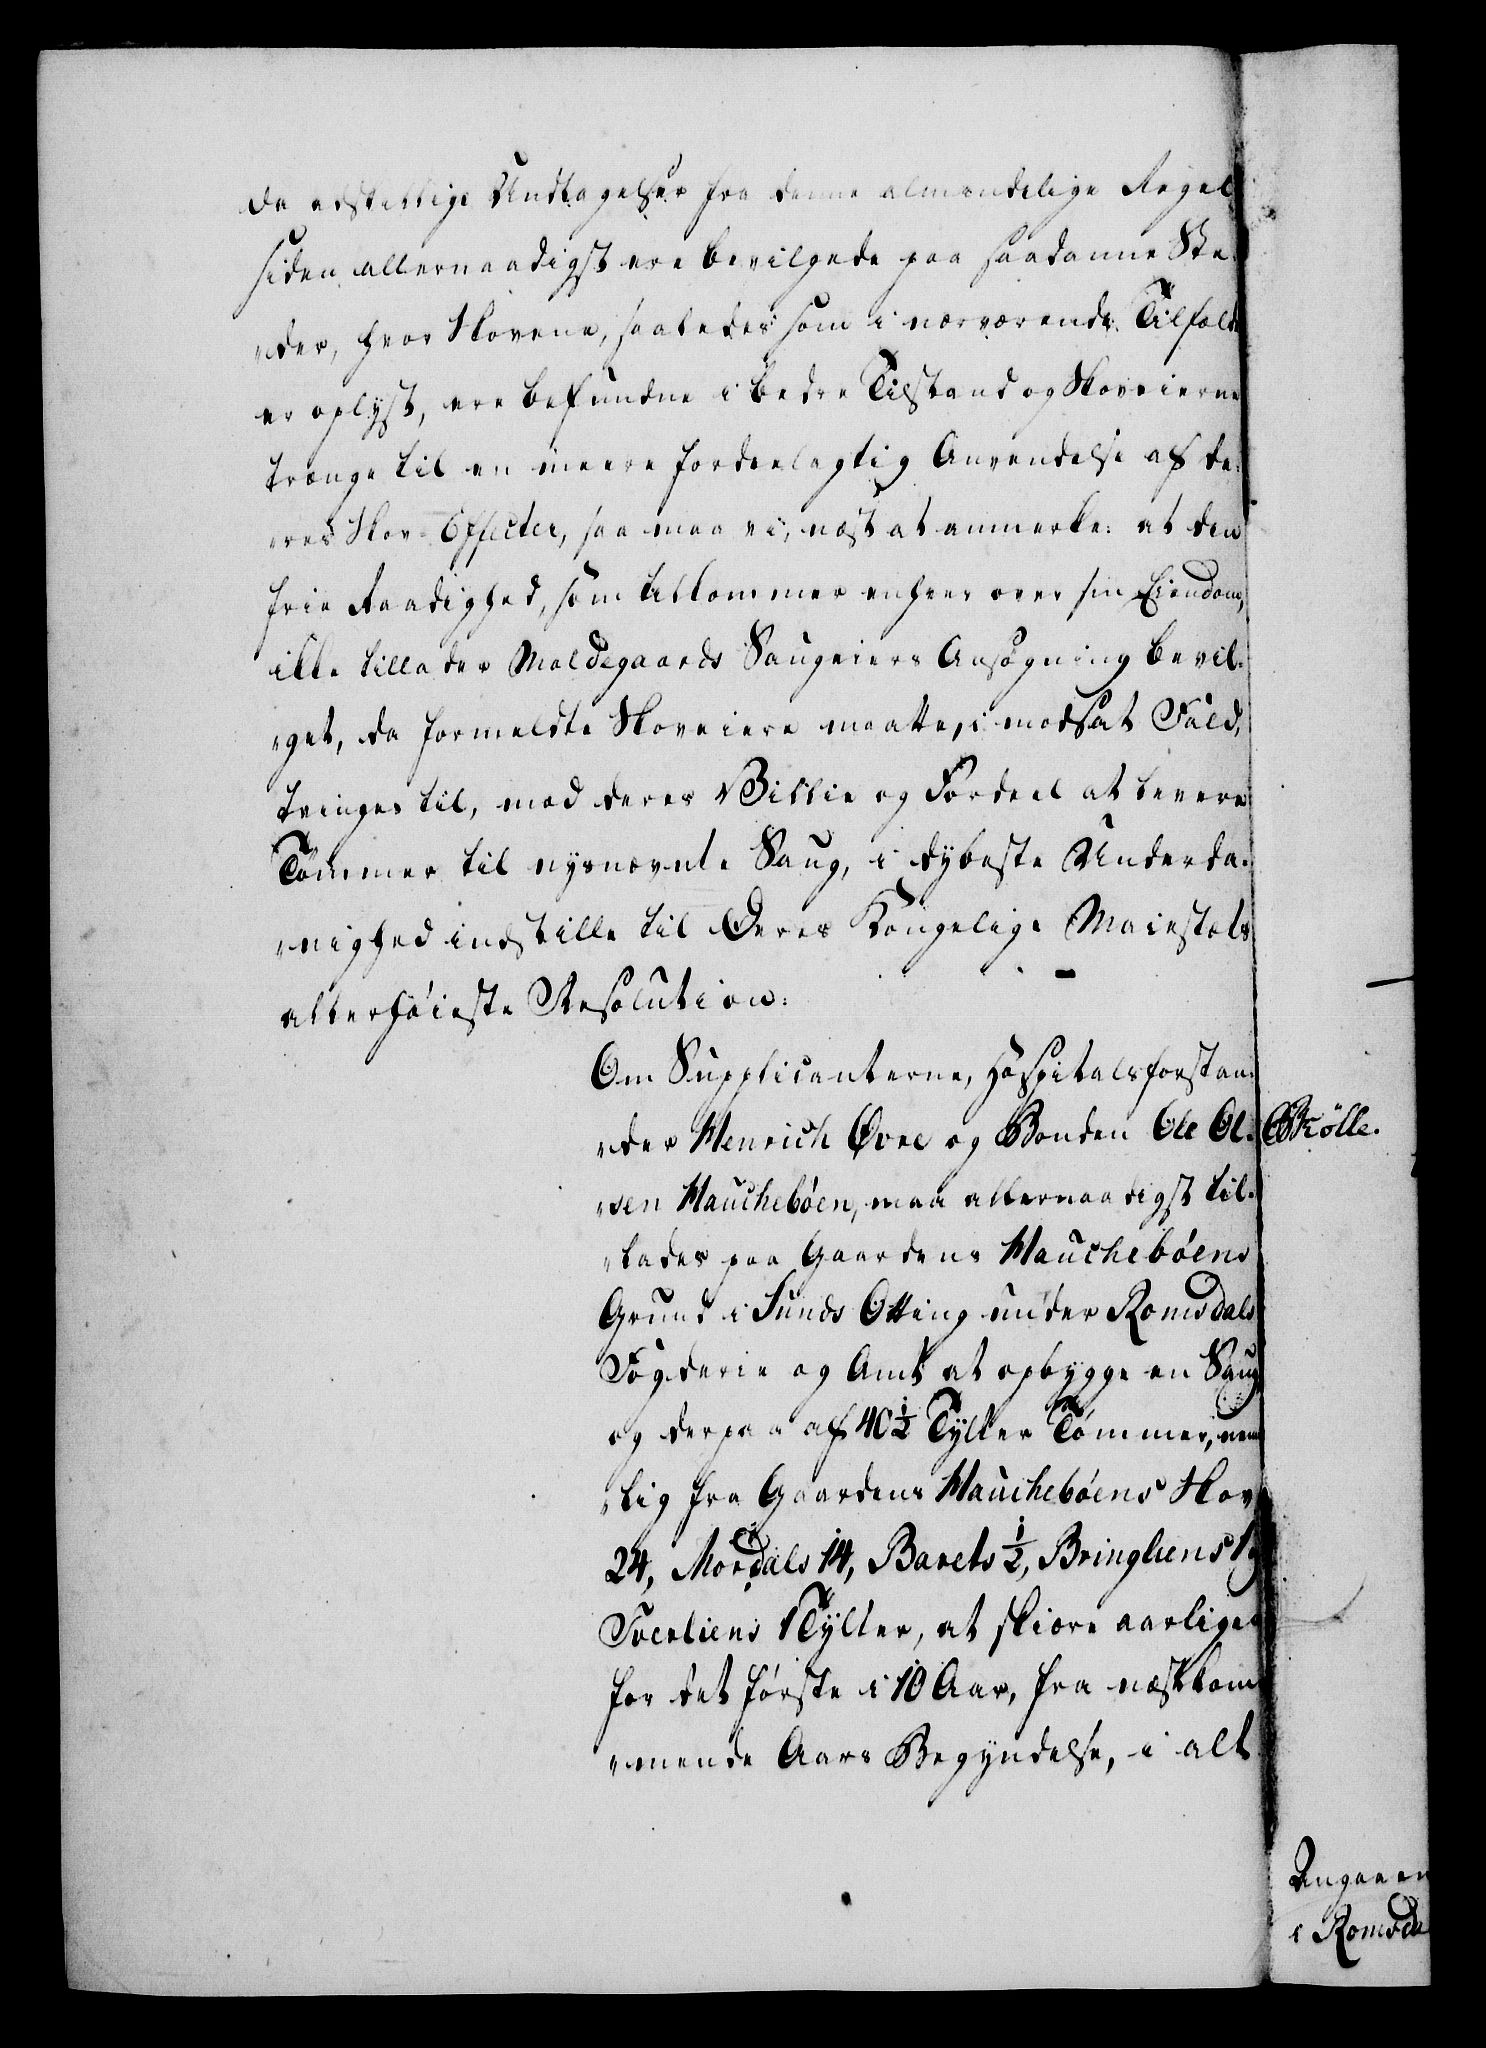 da adskillige Undtagelser fra denne almindelige Regel
siden allernaadigst ere bevilgede paa saadanne Ste-
„der, hvor Skovene, saaledes som i nærværende Tilfælde
er oplyst, ere befundne i bedre Tilstand og Skoveierne
trænge til en meere fordeelagtig Anvendelse af de-
„res Skov-Effecter, saa maa vi, næst at anmerke: at den
frie Raadighed, som tilkommer enhver over sin Eiendom,
ikke tillader Moldegaards Saugeiers Ansøgning bevil-
„get, da formeldte Skoveiere maatte, i modsat Fald,
tvinges til, mod deres Villie og Fordeel at levere
Tømmer til nysnævnte Saug, i dybeste Underda-
„nighed indstille til Deres Kongelige Maiestæts
allerhøieste Resolution:
Om Supplicanterne, Hospitalsforstan-
„der Henrich Øvre og Bonden Ole Ol-
„sen Hauchebøen, maa allernaadigst til-
„lades paa Gaardens Hauchebøens
Grund i Sunds Otting under Romsdals
Fogderie og Amt at opbygge en Saug
og derpaa af 40½ Tylter Tømmer, nem
„lig fra Gaardens Hauchebøens Skov
24, Mordals 14, Barets ½, Bringliens 1 og
Tverliens 1 Tylter, at skiære aarligen
for det første i 10 Aar, fra næstkom
„mende Aars Begyndelse, i alt
Angaaen
i Romsda